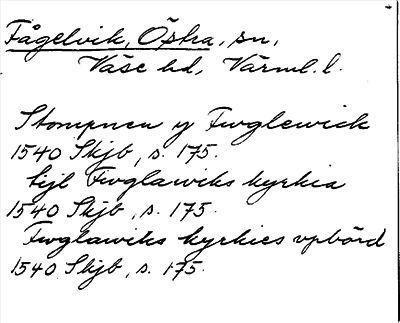 Fågelvik, Östra, sn,
Väse hd, Värml. l.
Stompnen y Fwglewick
1540 Skjb, s. 175.
tijl Fwglawiks kyrkia
1540 Skjb, s. 175.
Fwglawiks kyrkies vpbörd
1540 Skjb, s. 175.